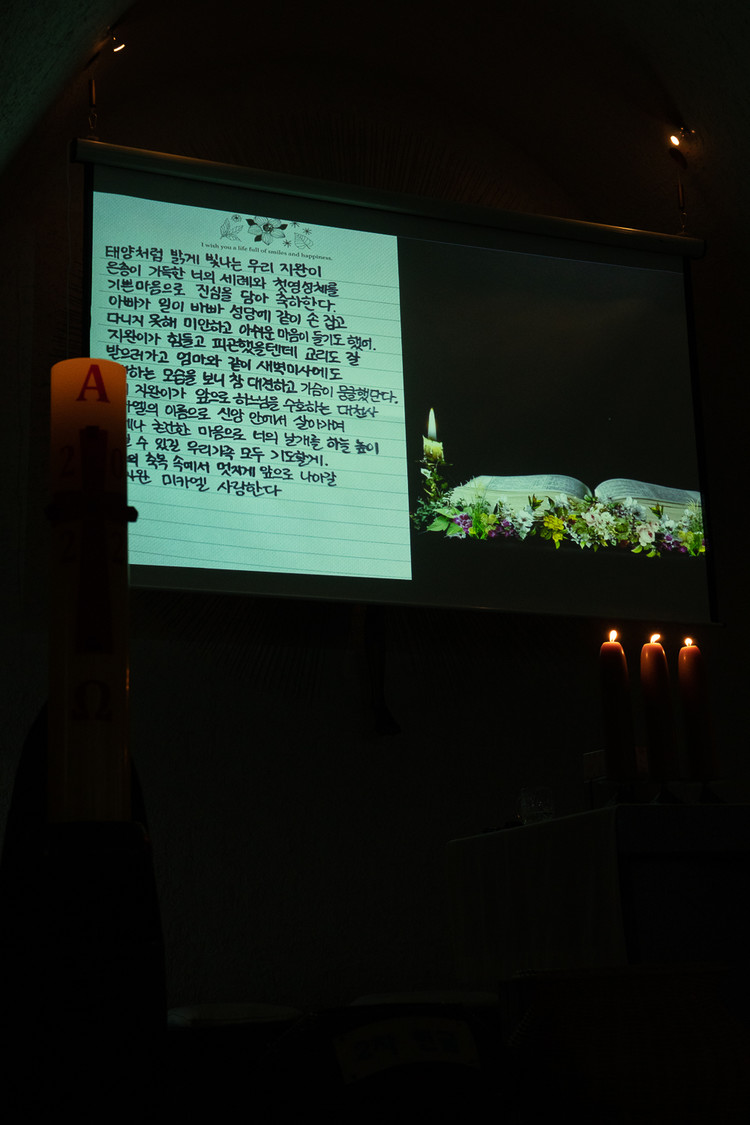 I wish you a life full of smiles and happiness.
태양처럼 밝게 빛나는 우리 지완이
은총이 가득한 너의 세례와 첫영성체를
기쁜마음으로 진심을 담아 축하한다.
아빠가 일이 바빠 성당에 같이 손 잡고
다니지 못해 미안하고 아쉬운 마음이 들기도 했어.
지완이가 힘들고 피곤했을텐테 교리도 잘
받으러가고 엄마와 같이 새벽미사에도
하는 모습을 보니 참 대견하고 가슴이 뭉클했단다.
지완이가 앞으로 하느님을 수호하는 대천사
이름으로 신앙 안에서 살아가며
순건한 마음으로 너의 날개를 하늘 높이
수 있길 우리가족 모두 기도할게.
축복 속에서 멋지게 앞으로 나아갈
미카엘 사랑한다
A
Ω